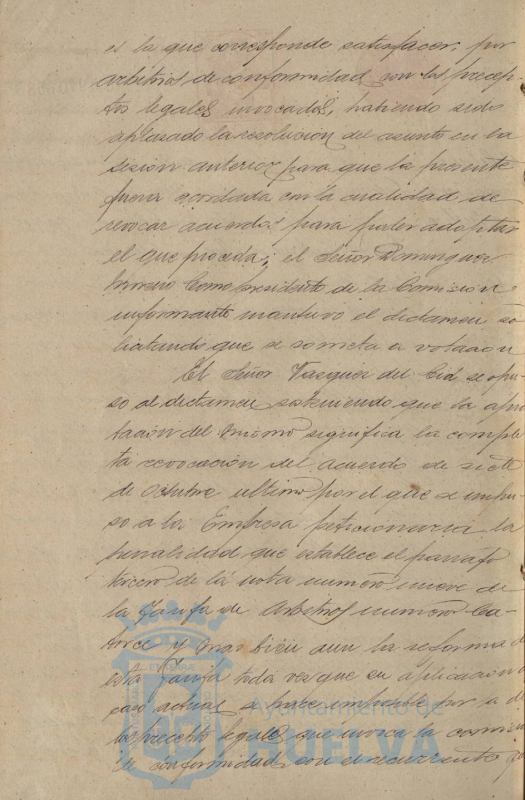 es la que corresponde satisfacer, por
arbitrios de conformidad con los precep-
tos legales invocados, habiendo sido
aplasado la resolución del asunto en la
sesión anterior para que la presente
fuera acordada con la cualidad de
revocar acuerdos para poder adoptar
el que proceda; el Señor Dominguez
Moreno como presidente de la Comisión
informante mantuvo el dictamen so
licitando que se someta a votación
El Señor Vasquez del Cid se opu-
so al dictamen sosteniendo que la apro
tación del mismo significa la comple
ta revocación del acuerdo de siete
de Octubre ultimo por el que se impu
so a la Empresa peticionaria la
penalidad que establece el parrafo
tercero de la nota numero nueve de
la Tarifa de Arbitrios numero Ca-
torce y mas bien aun la reforma de
esta Tarifa toda ves que en aplicacion
caso actual se hace imposible por
los preceptos legales que invoca la comision
de conformidad con el recurrente
Ayuntamiento de
HUELVA